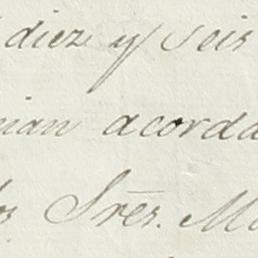 diez y seis
nian acorda
os Sres. Mo